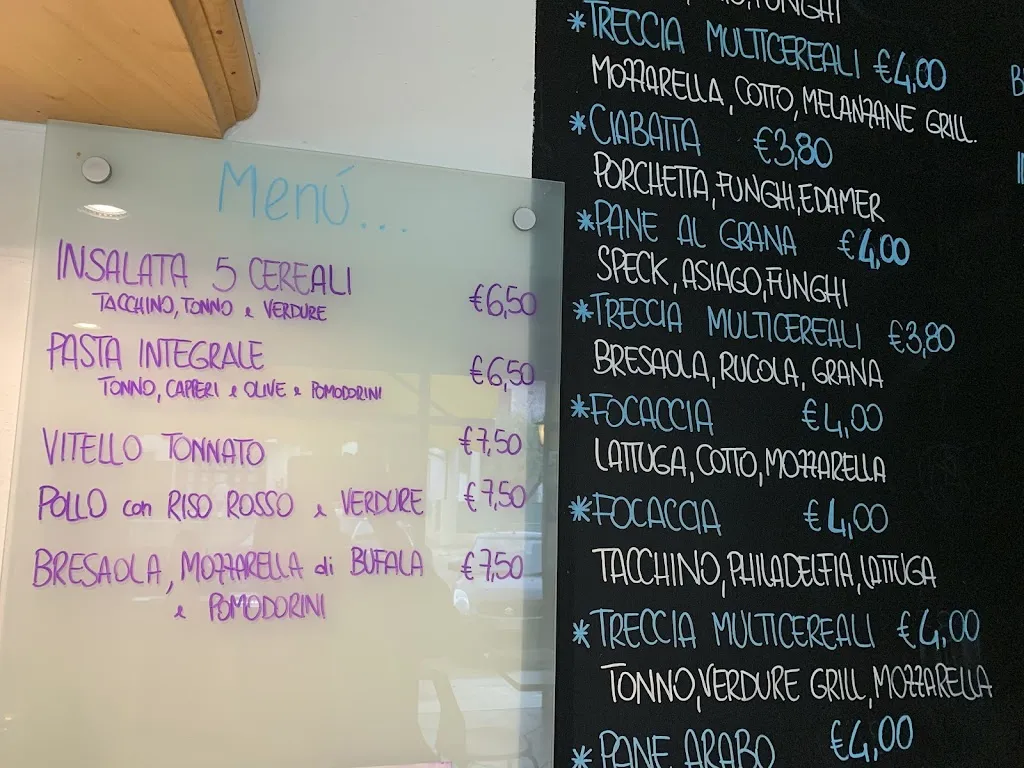 Menú...
INSALATA 5 CEREALI €6,50
TACCHINO, TONNO e VERDURE
PASTA INTEGRALE €6,50
TONNO, CAPPERI e OLIVE e POMODORINI
VITELLO TONNATO €7,50
POLLO con RISO ROSSO e VERDURE €7,50
BRESAOLA, MOZZARELLA di BUFALA €7,50
e POMODORINI
FUNGHI
*TRECCIA MULTICEREALI €4,00
MOZZARELLA, COTTO, MELANZANE GRILL.
*CIABATTA €3,80
PORCHETTA, FUNGHI, EDAMER
*PANE AL GRANA €4,00
SPECK, ASIAGO, FUNGHI
*TRECCIA MULTICEREALI €3,80
BRESAOLA, RUCOLA, GRANA
*FOCACCIA €4,00
LATTUGA, COTTO, MOZZARELLA
*FOCACCIA €4,00
TACCHINO, PHILADELFIA, LATTUGA
*TRECCIA MULTICEREALI €4,00
TONNO, VERDURE GRILL, MOZZARELLA
*PANE ARABO €4,00